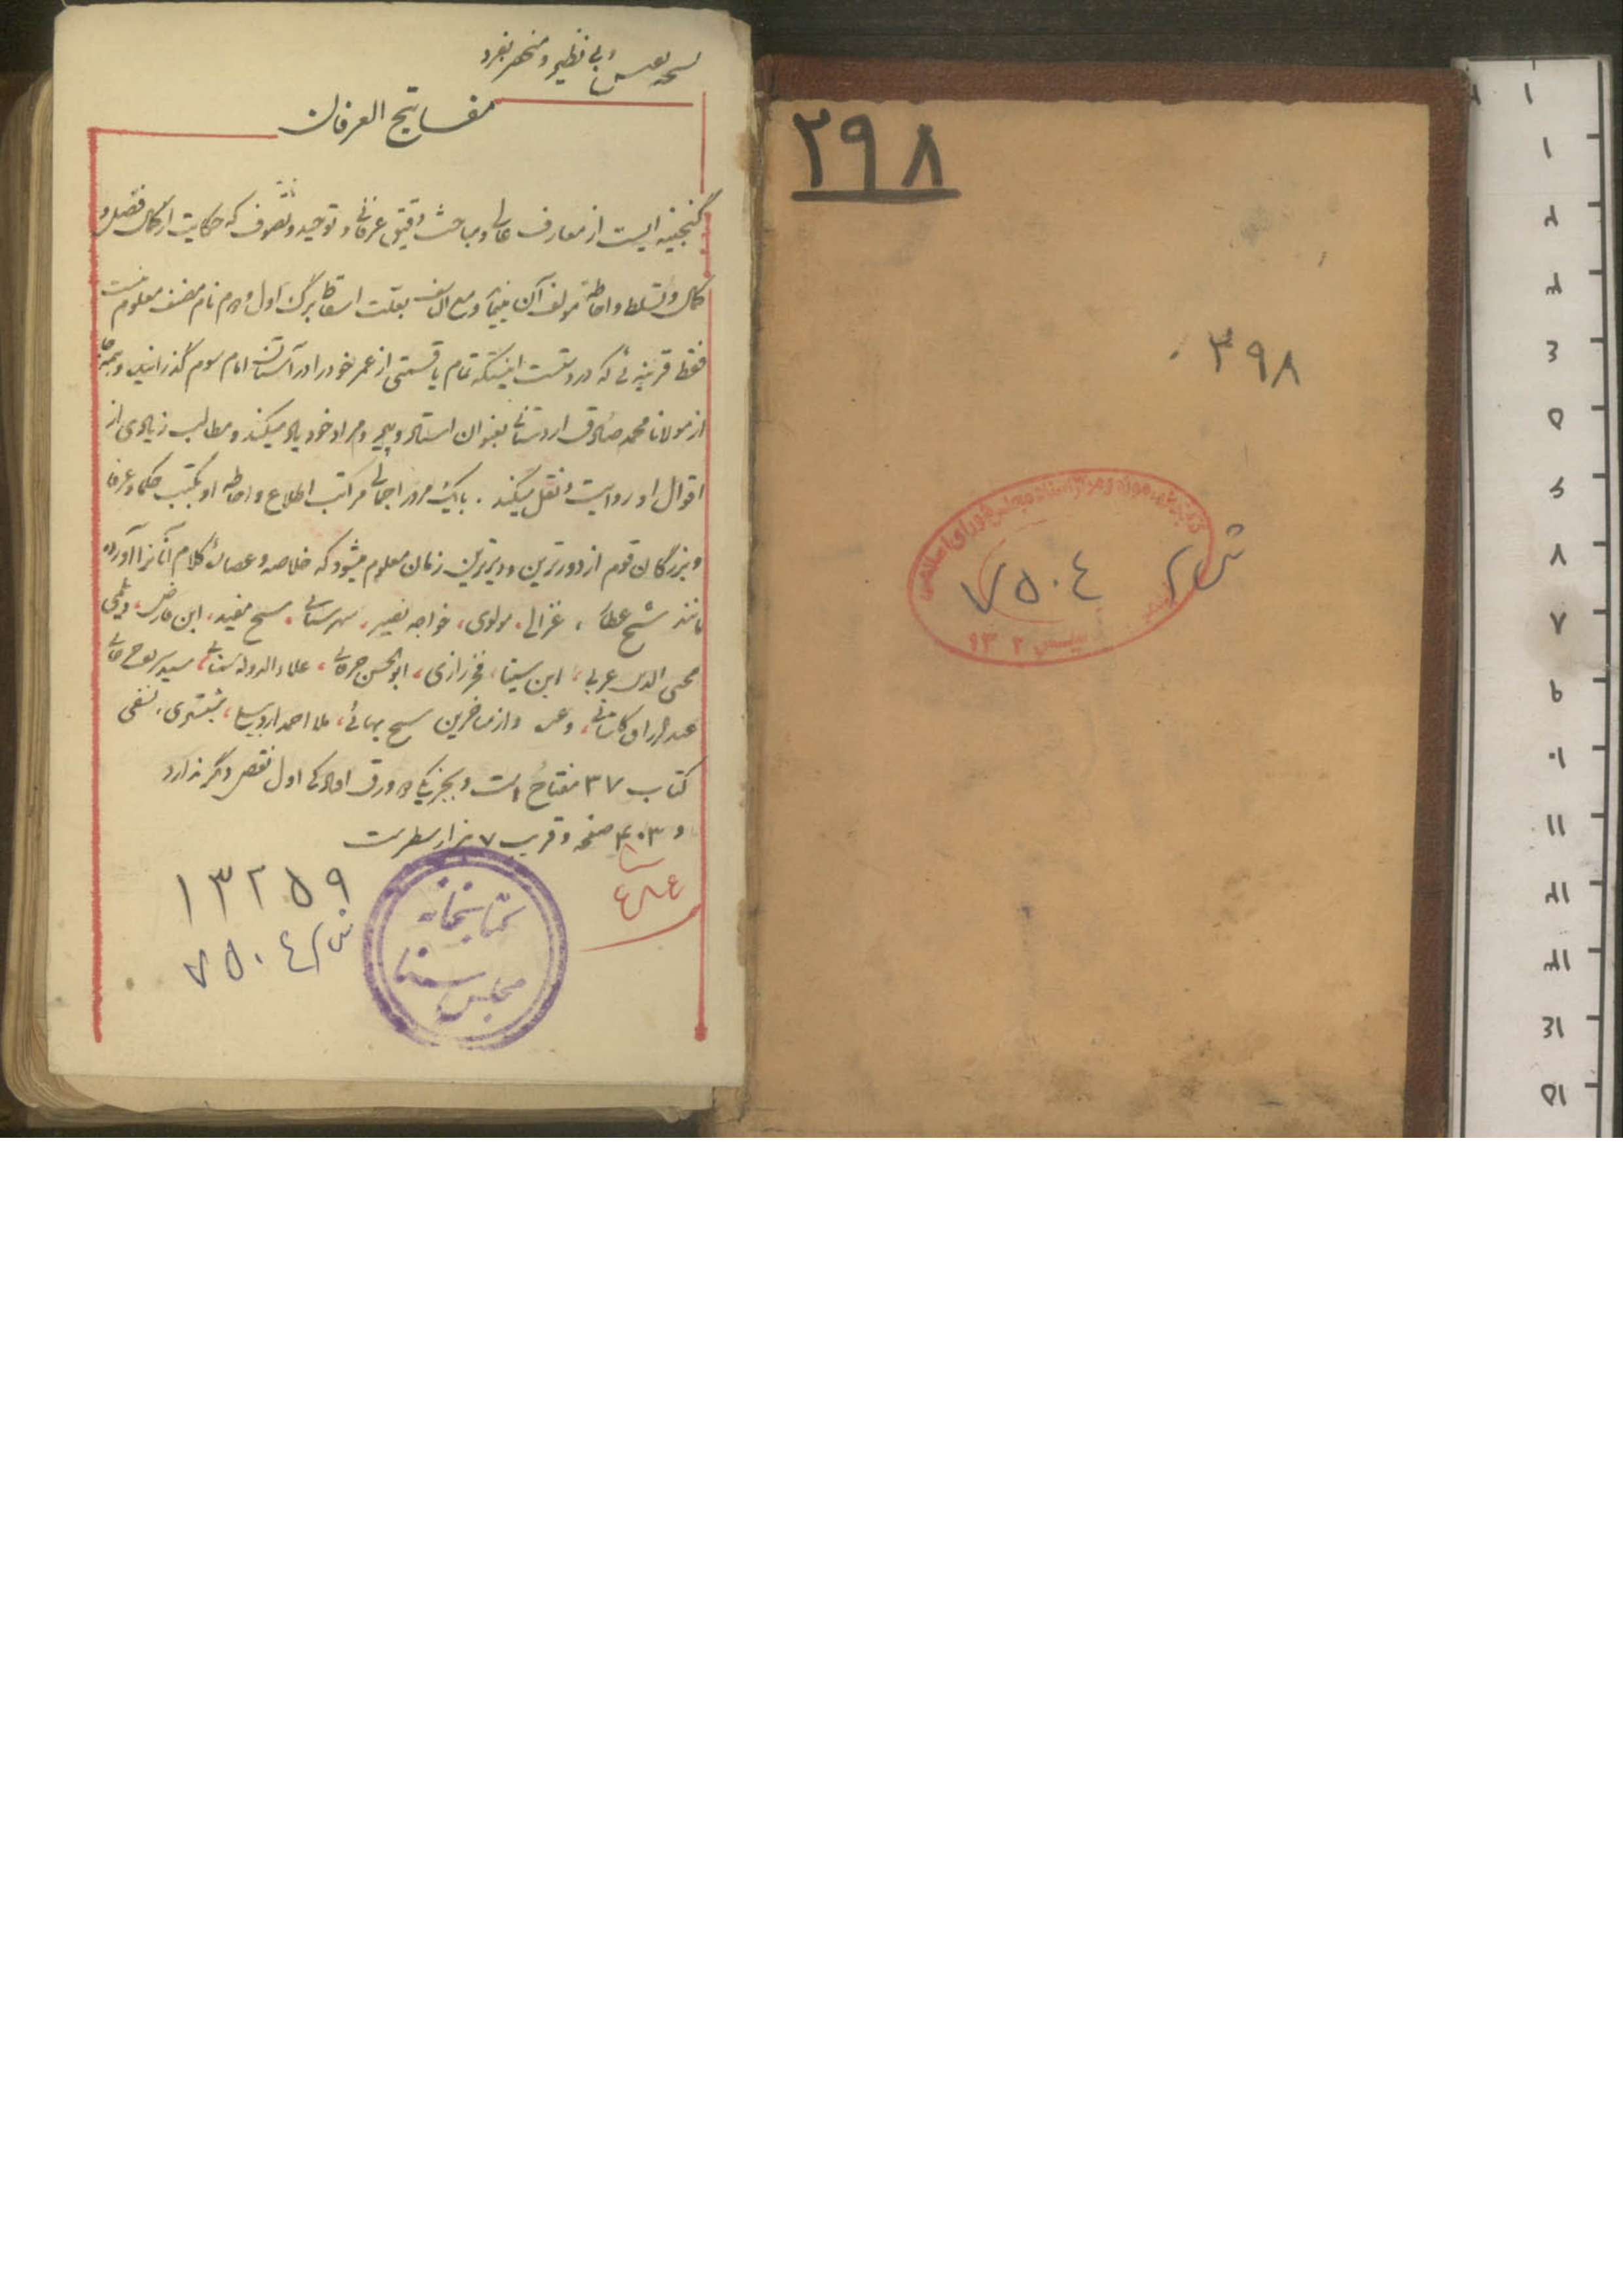 ۲۹۸
۳۹۸
ش ۷۵۰٤
نسخه نفیس و بی نظیر و منحصر بفرد
مفاتیح العرفان
گنجینه ایست از معارف عالی و مباحث دقیق عرفانی و توحید و تصوف که حکایت از کمال فضل و
کمال و تسلط و احاطه مولف آن مینماید و مع التاسف بعلت اسقاط برگ اول و دوم نام مصنف معلوم نیست
فقط قرینه ئی که در دست اینستکه تمام یا قسمتی از عمر خود را در آستان امام سوم گذرانیده و همه جا
از مولانا محمد صادق اردستانی بعنوان استاد و پیر و مراد خود یاد میکند و مطالب زیادی از
اقوال او روایت و نقل میکند . با یک مرور اجمالی مراتب اطلاع و احاطه او بکتب حکما و عرفا
و بزرگان قوم از دورترین و دیرترین زمان معلوم میشود که خلاصه و عصاره کلام آنانرا آورده
مانند شیخ عطار ، غزالی ، مولوی ، خواجه نصیر ، شهرستانی ، شیخ مفید ، ابن فارض ، دیلمی
محی الدین عربی ، ابن سینا ، فخر رازی ، ابوالحسن خرقانی ، علاء الدوله سمنانی ، سید
عبدالرزاق کاشانی ، و از متاخرین شیخ بهائی ، ملا احمد اردبیلی ، شبستری ، نسفی
کتاب ۳۷ مفتاح است و بجز یکی دو ورق افتادگی اول نقص دیگر ندارد
و ۴۰۳ صفحه و قریب ۷ هزار سطر است
۱۳۲۵۹
ش ۷۵۰٤
کتابخانه
مجلس سنا